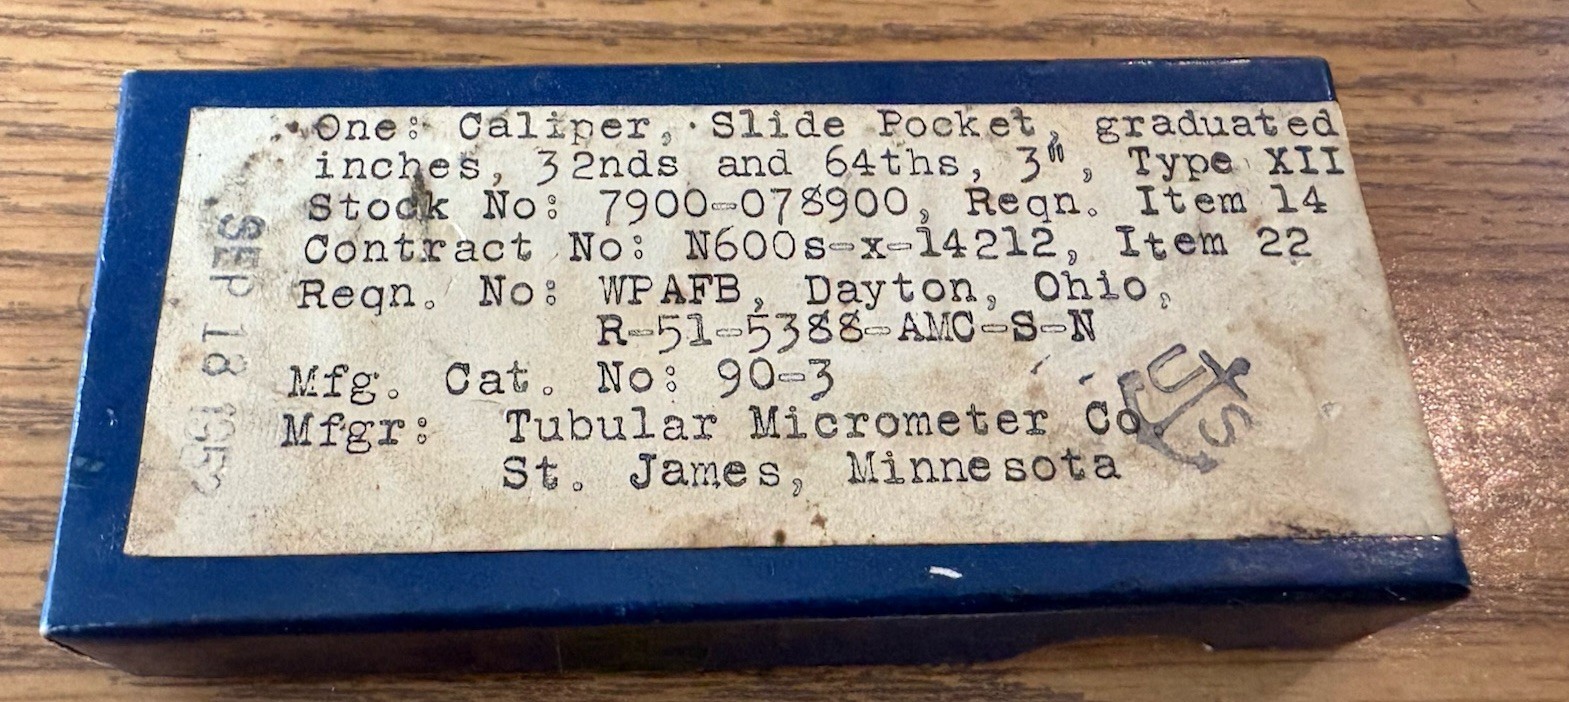 One: Caliper, Slide Pocket, graduated
inches, 32nds and 64ths, 3", Type XII
Stock No: 7900-078900, Reqn. Item 14
Contract No: N600s-x-14212, Item 22
Reqn. No: WPAFB, Dayton, Ohio,
R-51-5388-AMC-S-N
Mfg. Cat. No: 90-3
Mfgr: Tubular Micrometer Co.
St. James, Minnesota
SEP 18 1952
US